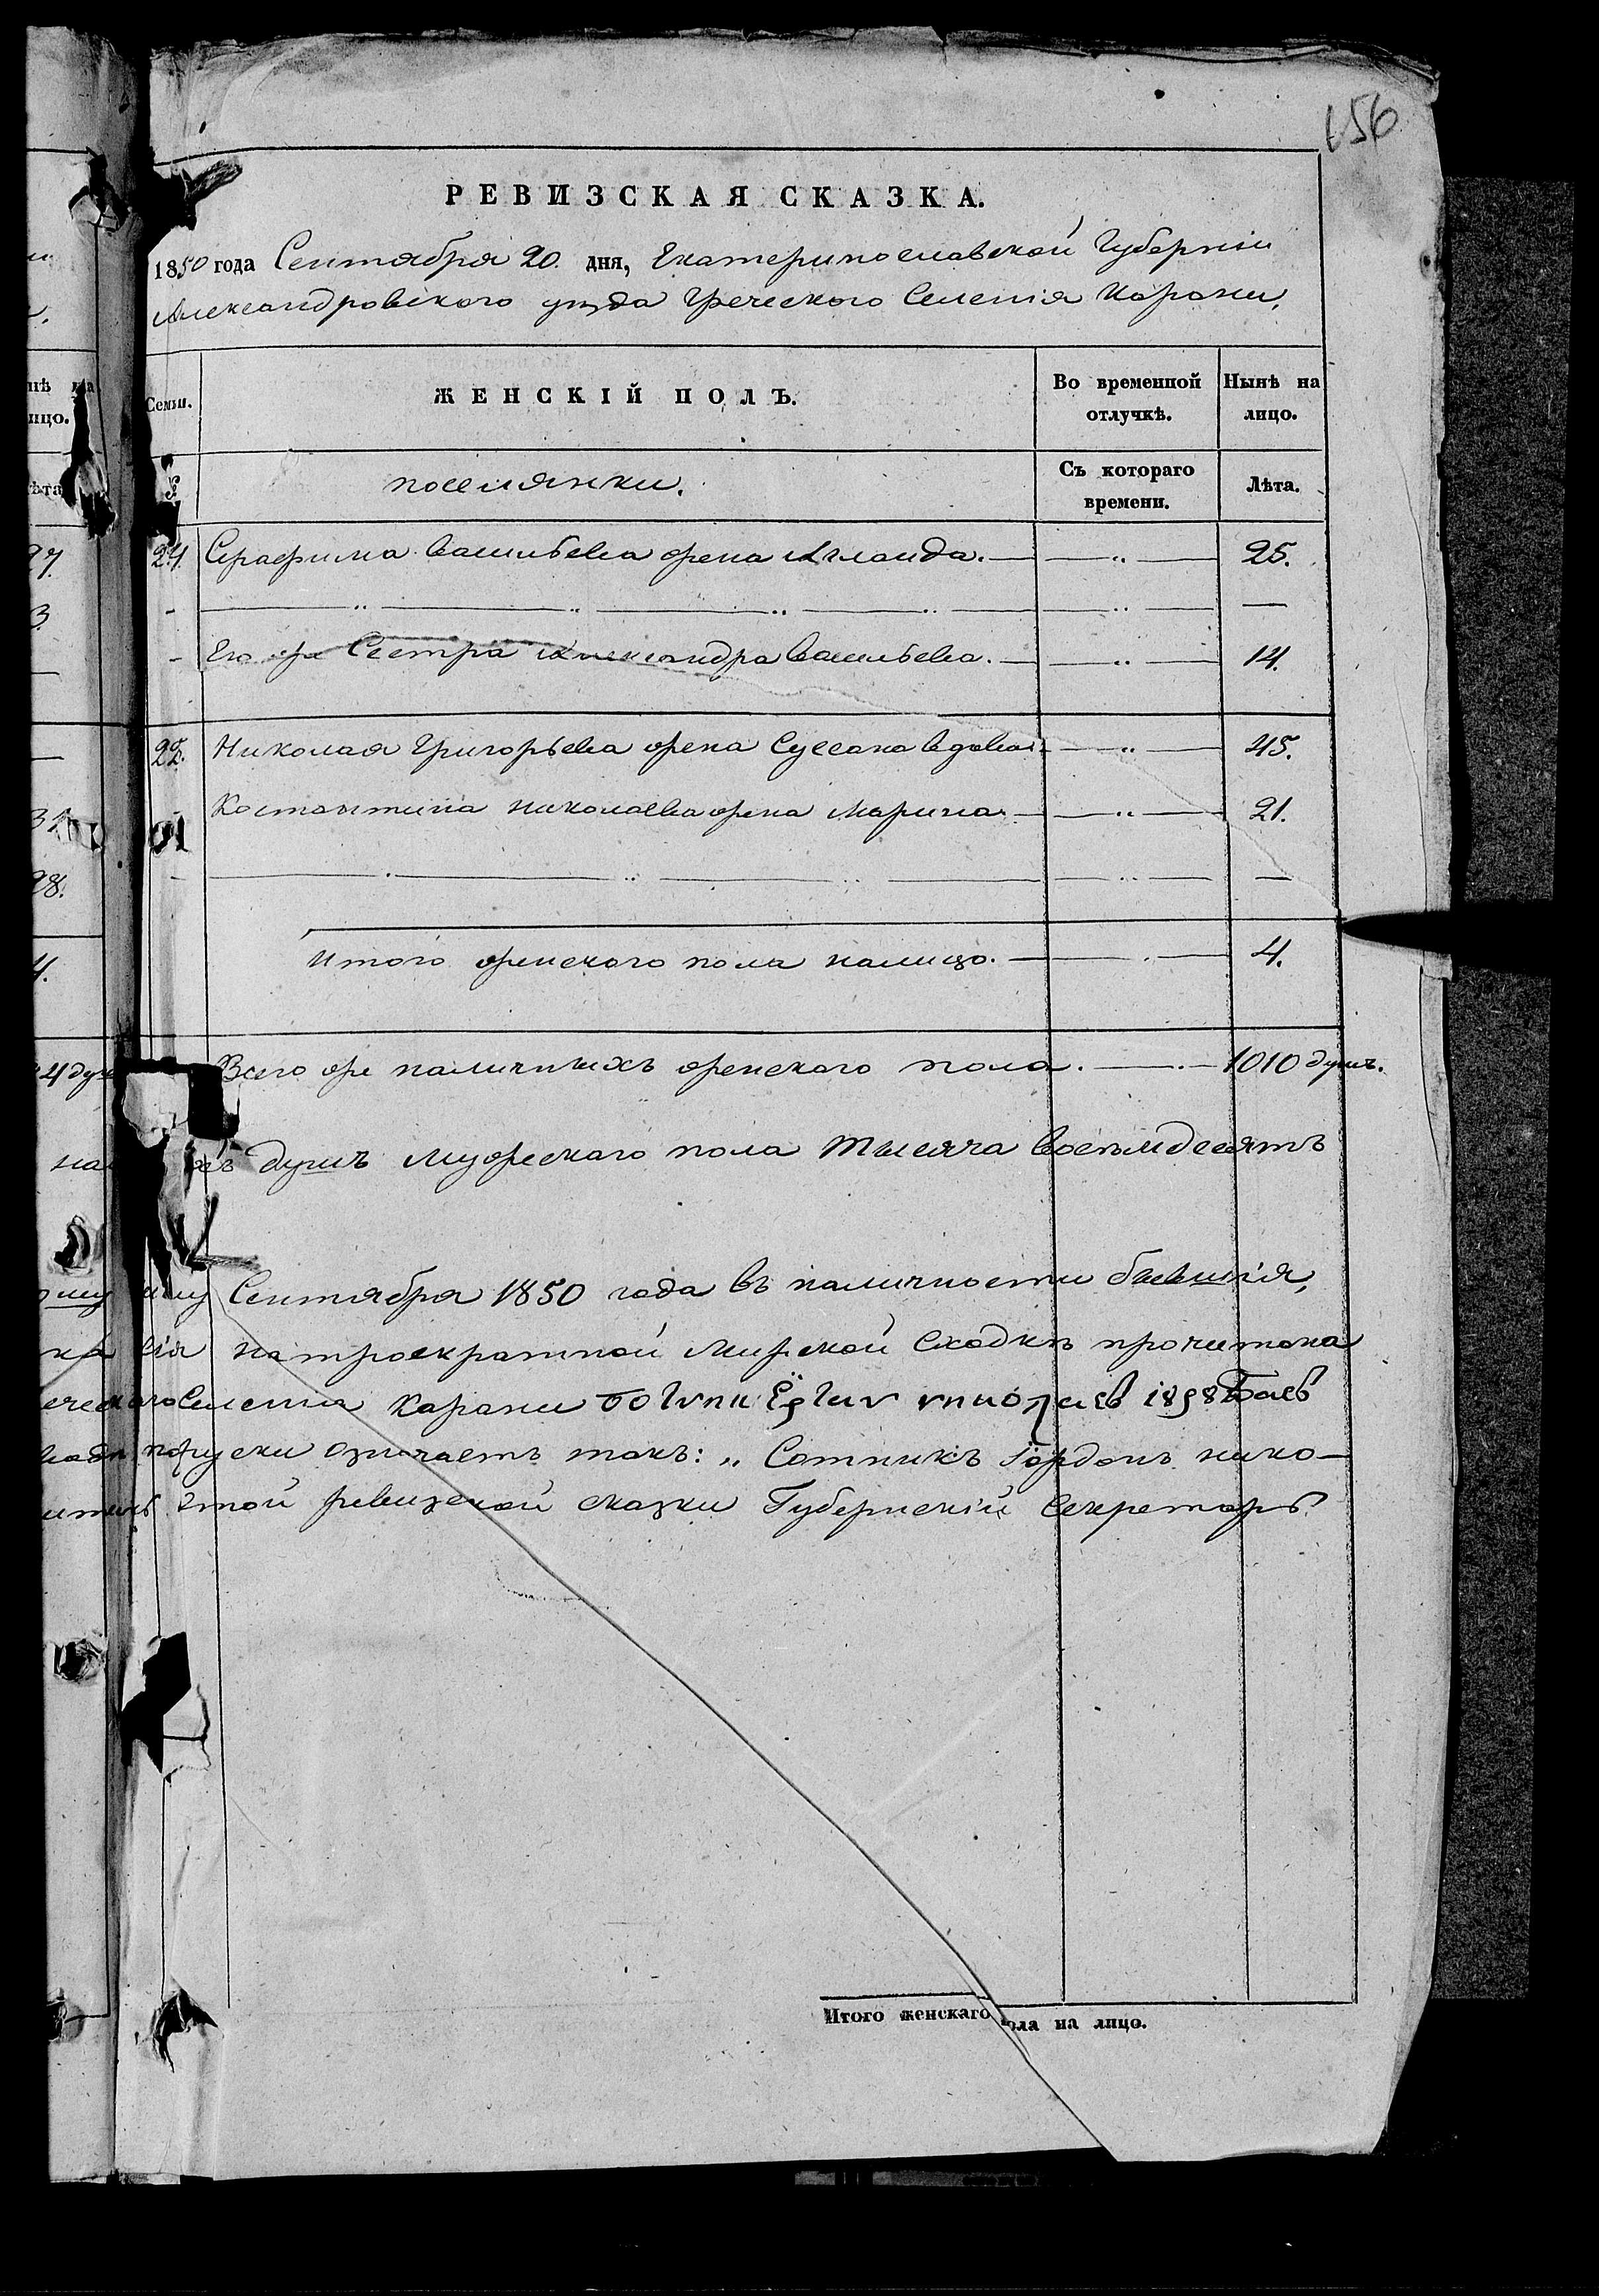 156
РЕВИЗСКАЯ СКАЗКА.
1850 года Сентября 20 дня, Екатеринославской Губерніи
Александровскаго уѣзда Греческаго Селенія Карани.
Семьи. ЖЕНСКІЙ ПОЛЪ. Во временной отлучкѣ. Нынѣ на лицо.
№ поселянки. Съ котораго времени. Лѣта.
Серафима Васильева жена 25.
— — —
Его же Сестра Александра Васильева. — 14.
Николая Григорьева жена Сусана вдова — 45.
Костантина Николаева жена Марина — 21.
— — —
Итого женскаго пола налицо. — 4.
Всего же наличныхъ женскаго пола. — 1010 душъ.
душъ мужескаго пола тысяча восемдесятъ
Сентября 1850 года въ наличности бывшія,
сія на троекратной мирской Сходкѣ прочитана
Селенія Карани
поруски означаетъ такъ: „ Сотникъ Іордонъ нико—
этой ревизской сказки Губернскій Секретарь
Итого женскаго пола на лицо.